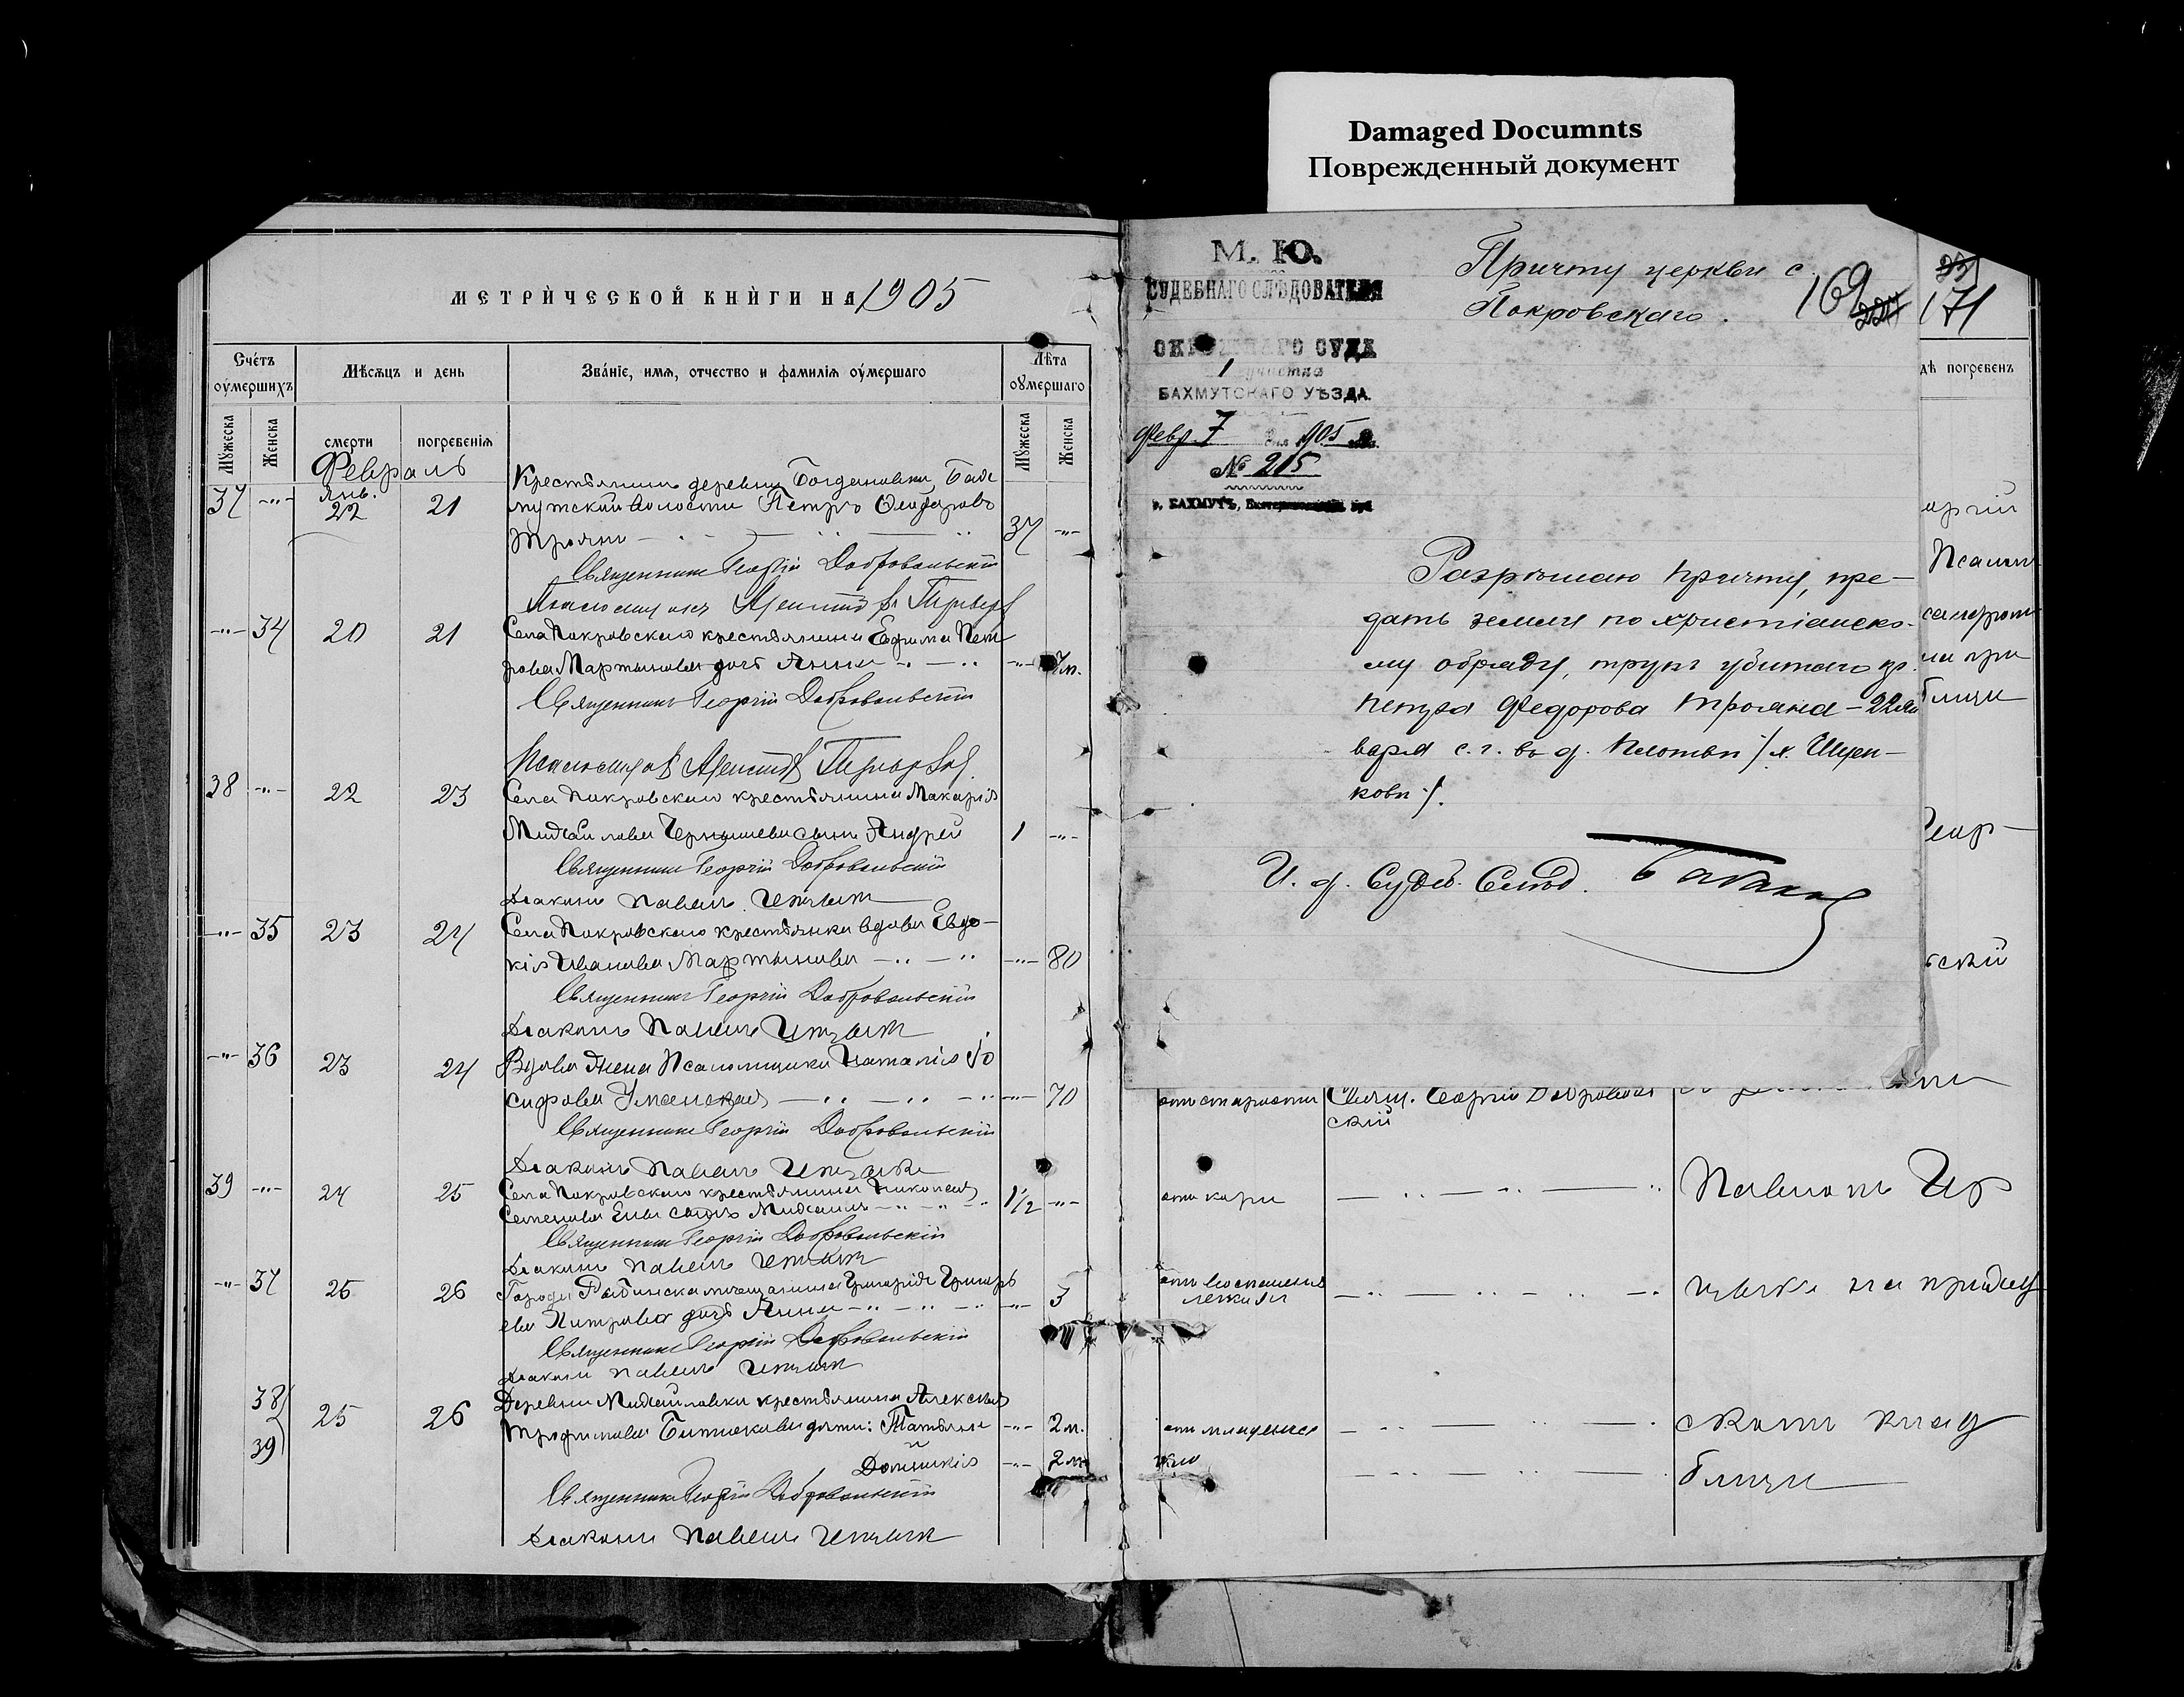 Damaged Documnts
Поврежденный документ
МЕТРИЧЕСКОЙ КНИГИ НА 1905
Счетъ умершихъ
Мѣсяцъ и день
Званіе, имя, отчество и фамилія умершаго
Лѣта умершаго
Мужеска
Женска
смерти
погребенія
Мужеска
Женска
Февраль
37 -"- Янв. 22 21
Крестьянинъ деревни Богдановки, Бах
мутской волости Петръ Ѳеодоровъ
Троянъ 37 -"-
Священникъ Георгій Добровольскій
-"- 34 20 21
Села Покровскаго крестьянина Евфима Пет
рова Мартынова дочь Анна -"- 7м.
Священникъ Георгій Добровольскій
38 -"- 22 23
Села Покровскаго крестьянина Макарія
Михайлова Чернышева сынъ Андрей 1 -"-
Священникъ Георгій Добровольскій
Діаконъ Павелъ
-"- 35 23 24
Села Покровскаго крестьянка вдова Евдо-
кія Иванова Мартынова -"- 80
Священникъ Георгій Добровольскій
Діаконъ Павелъ
-"- 36 23 24
Вдова жена Псаломщика Наталія Іо
сифова Уманская -"- 70
Священникъ Георгій Добровольскій
Діаконъ Павелъ
39 -"- 24 25
Села Покровскаго крестьянина Николая
Семенова сынъ Михаилъ 1½ -"-
Священникъ Георгій Добровольскій
Діаконъ Павелъ
-"- 37 25 26
Города мѣщанина Григорія Григорь
ева дочь Анна -"- 3
Священникъ Георгій Добровольскій
Діаконъ Павелъ
38 39 25 26
Деревни Михайловки крестьянина Алексѣя
Трофимова дѣти: Татьяна -"- 2м.
Домникія -"- 2м.
Священникъ Георгій Добровольскій
Діаконъ Павелъ
М. Ю.
СУДЕБНАГО СЛѢДОВАТЕЛЯ
ОКРУЖНАГО СУДА
1 участка
БАХМУТСКАГО УѢЗДА.
Февр. 7 дня 1905 г.
№ 215
г. БАХМУТЪ,
Причту церкви с.
Покровскаго.
169
171
Разрѣшаю причту, пре-
дать землѣ по христіанско-
му обряду, трупъ убитаго кр.
Петра Федорова Трояна - 22 ян
варя с. г. въ д. Плотвѣ /х. Щен-
ковѣ/.
И. д. Судеб. Слѣд.
дѣ погребенъ
Псалом
ла при
бищи
Геор-
ьскій
отъ старости
Свящ. Георгій Добровол
скій
отъ кори
Павломъ
отъ воспаленія
легкихъ
на приход
отъ младенч
скомъ клад
бищи